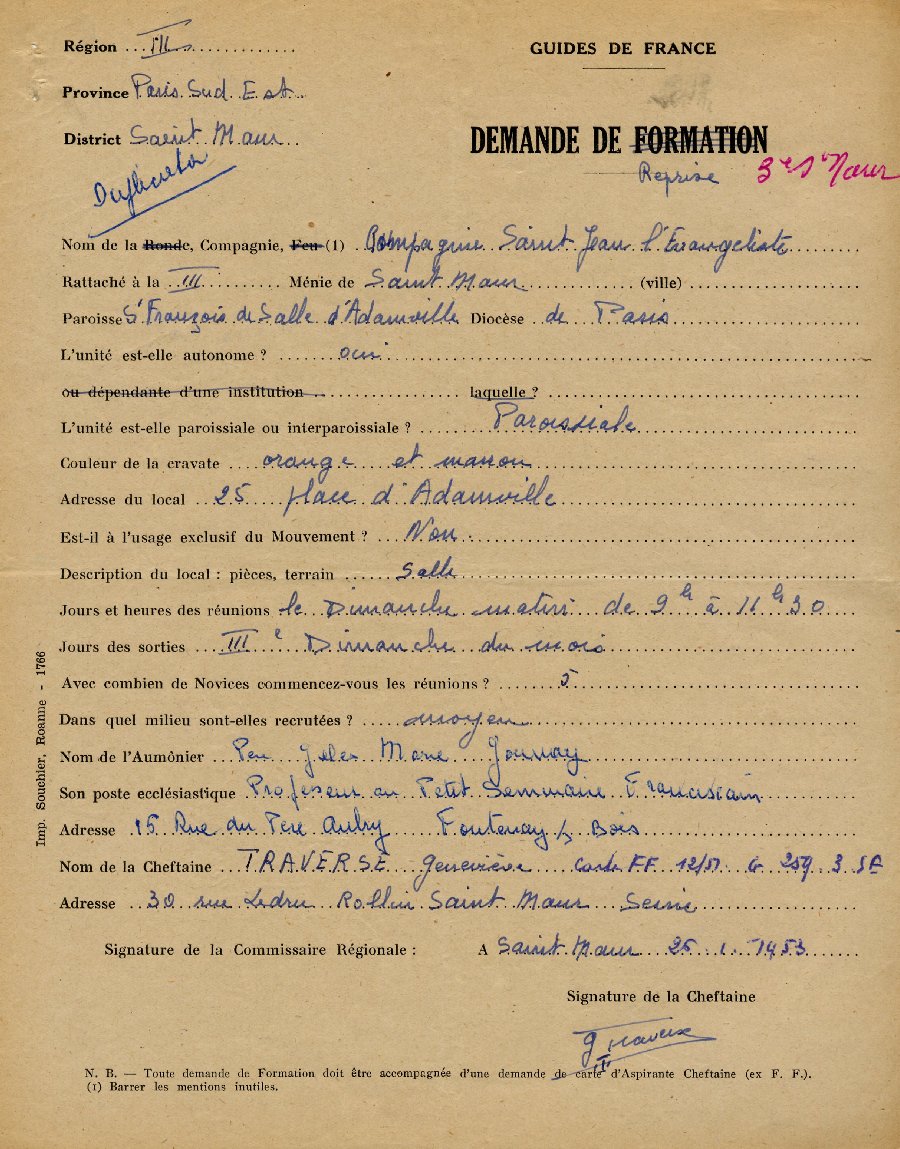 Région III
GUIDES DE FRANCE
Province Paris Sud Est
District Saint Maur
DEMANDE DE FORMATION
Reprise
3e St Maur
Duplicata
Nom de la Ronde, Compagnie, Feu (1) Compagnie Saint Jean l'Evangeliste
Rattaché à la III Ménie de Saint Maur (ville)
Paroisse St François de Salle d'Adamville Diocèse de Paris
L'unité est-elle autonome ? oui
ou dépendante d'une institution laquelle ?
L'unité est-elle paroissiale ou interparoissiale ? Paroissiale
Couleur de la cravate orange et marron
Adresse du local 25 place d'Adamville
Est-il à l'usage exclusif du Mouvement ? Non.
Description du local : pièces, terrain Salle
Jours et heures des réunions le Dimanche matin de 9h à 11h30
Jours des sorties IIIe Dimanche du mois
Avec combien de Novices commencez-vous les réunions ? 5
Dans quel milieu sont-elles recrutées ? moyen
Nom de l'Aumônier Marie Gournay
Son poste ecclésiastique Professeur au Petit Seminaire Franciscain
Adresse 15 Rue du Pere Aubry Fontenay s/ Bois
Nom de la Cheftaine TRAVERSE Geneviève Carte FF 12/51 259 3 SE
Adresse 30 rue Ledru Rollin Saint Maur Seine
Signature de la Commissaire Régionale :
A Saint Maur 25.1.1953
Signature de la Cheftaine
G Traverse
N. B. — Toute demande de Formation doit être accompagnée d'une demande de carte d'Aspirante Cheftaine (ex F. F.).
(1) Barrer les mentions inutiles.
Imp. Souchier, Roanne - 1766